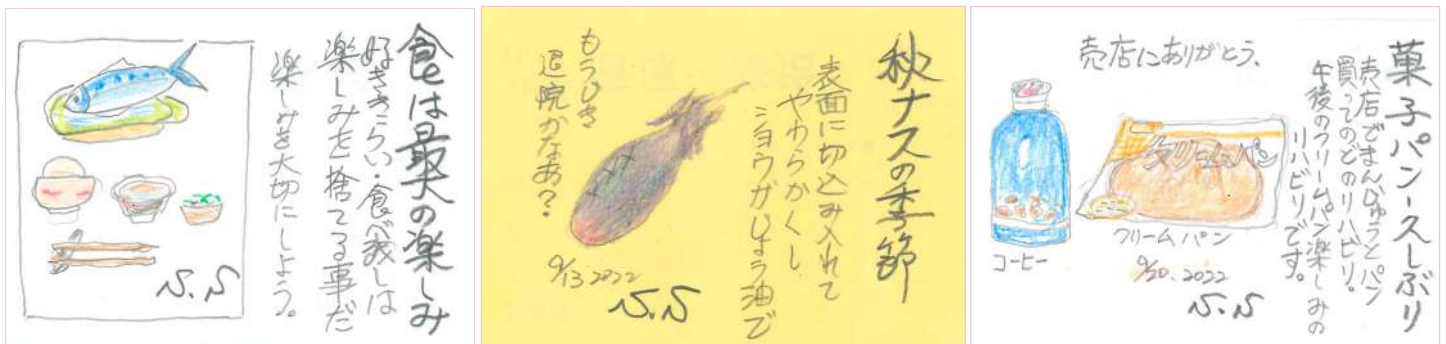 食は最大の楽しみ
好ききらい・食べ残しは
楽しみを捨てる事だ
楽しみを大切にしよう。
N.N
秋ナスの季節
表面に切込み入れて
やわらかくし
ショウガじょう油で
もうじき
退院かなあ?
9/13 2022
N.N
菓子パン久しぶり
売店でまんじゅうとパン
買ってのどのリハビリ。
午後のクリームパン楽しみの
リハビリです。
売店にありがとう、
クリームパン
コーヒー
クリームパン
9/20. 2022
N.N